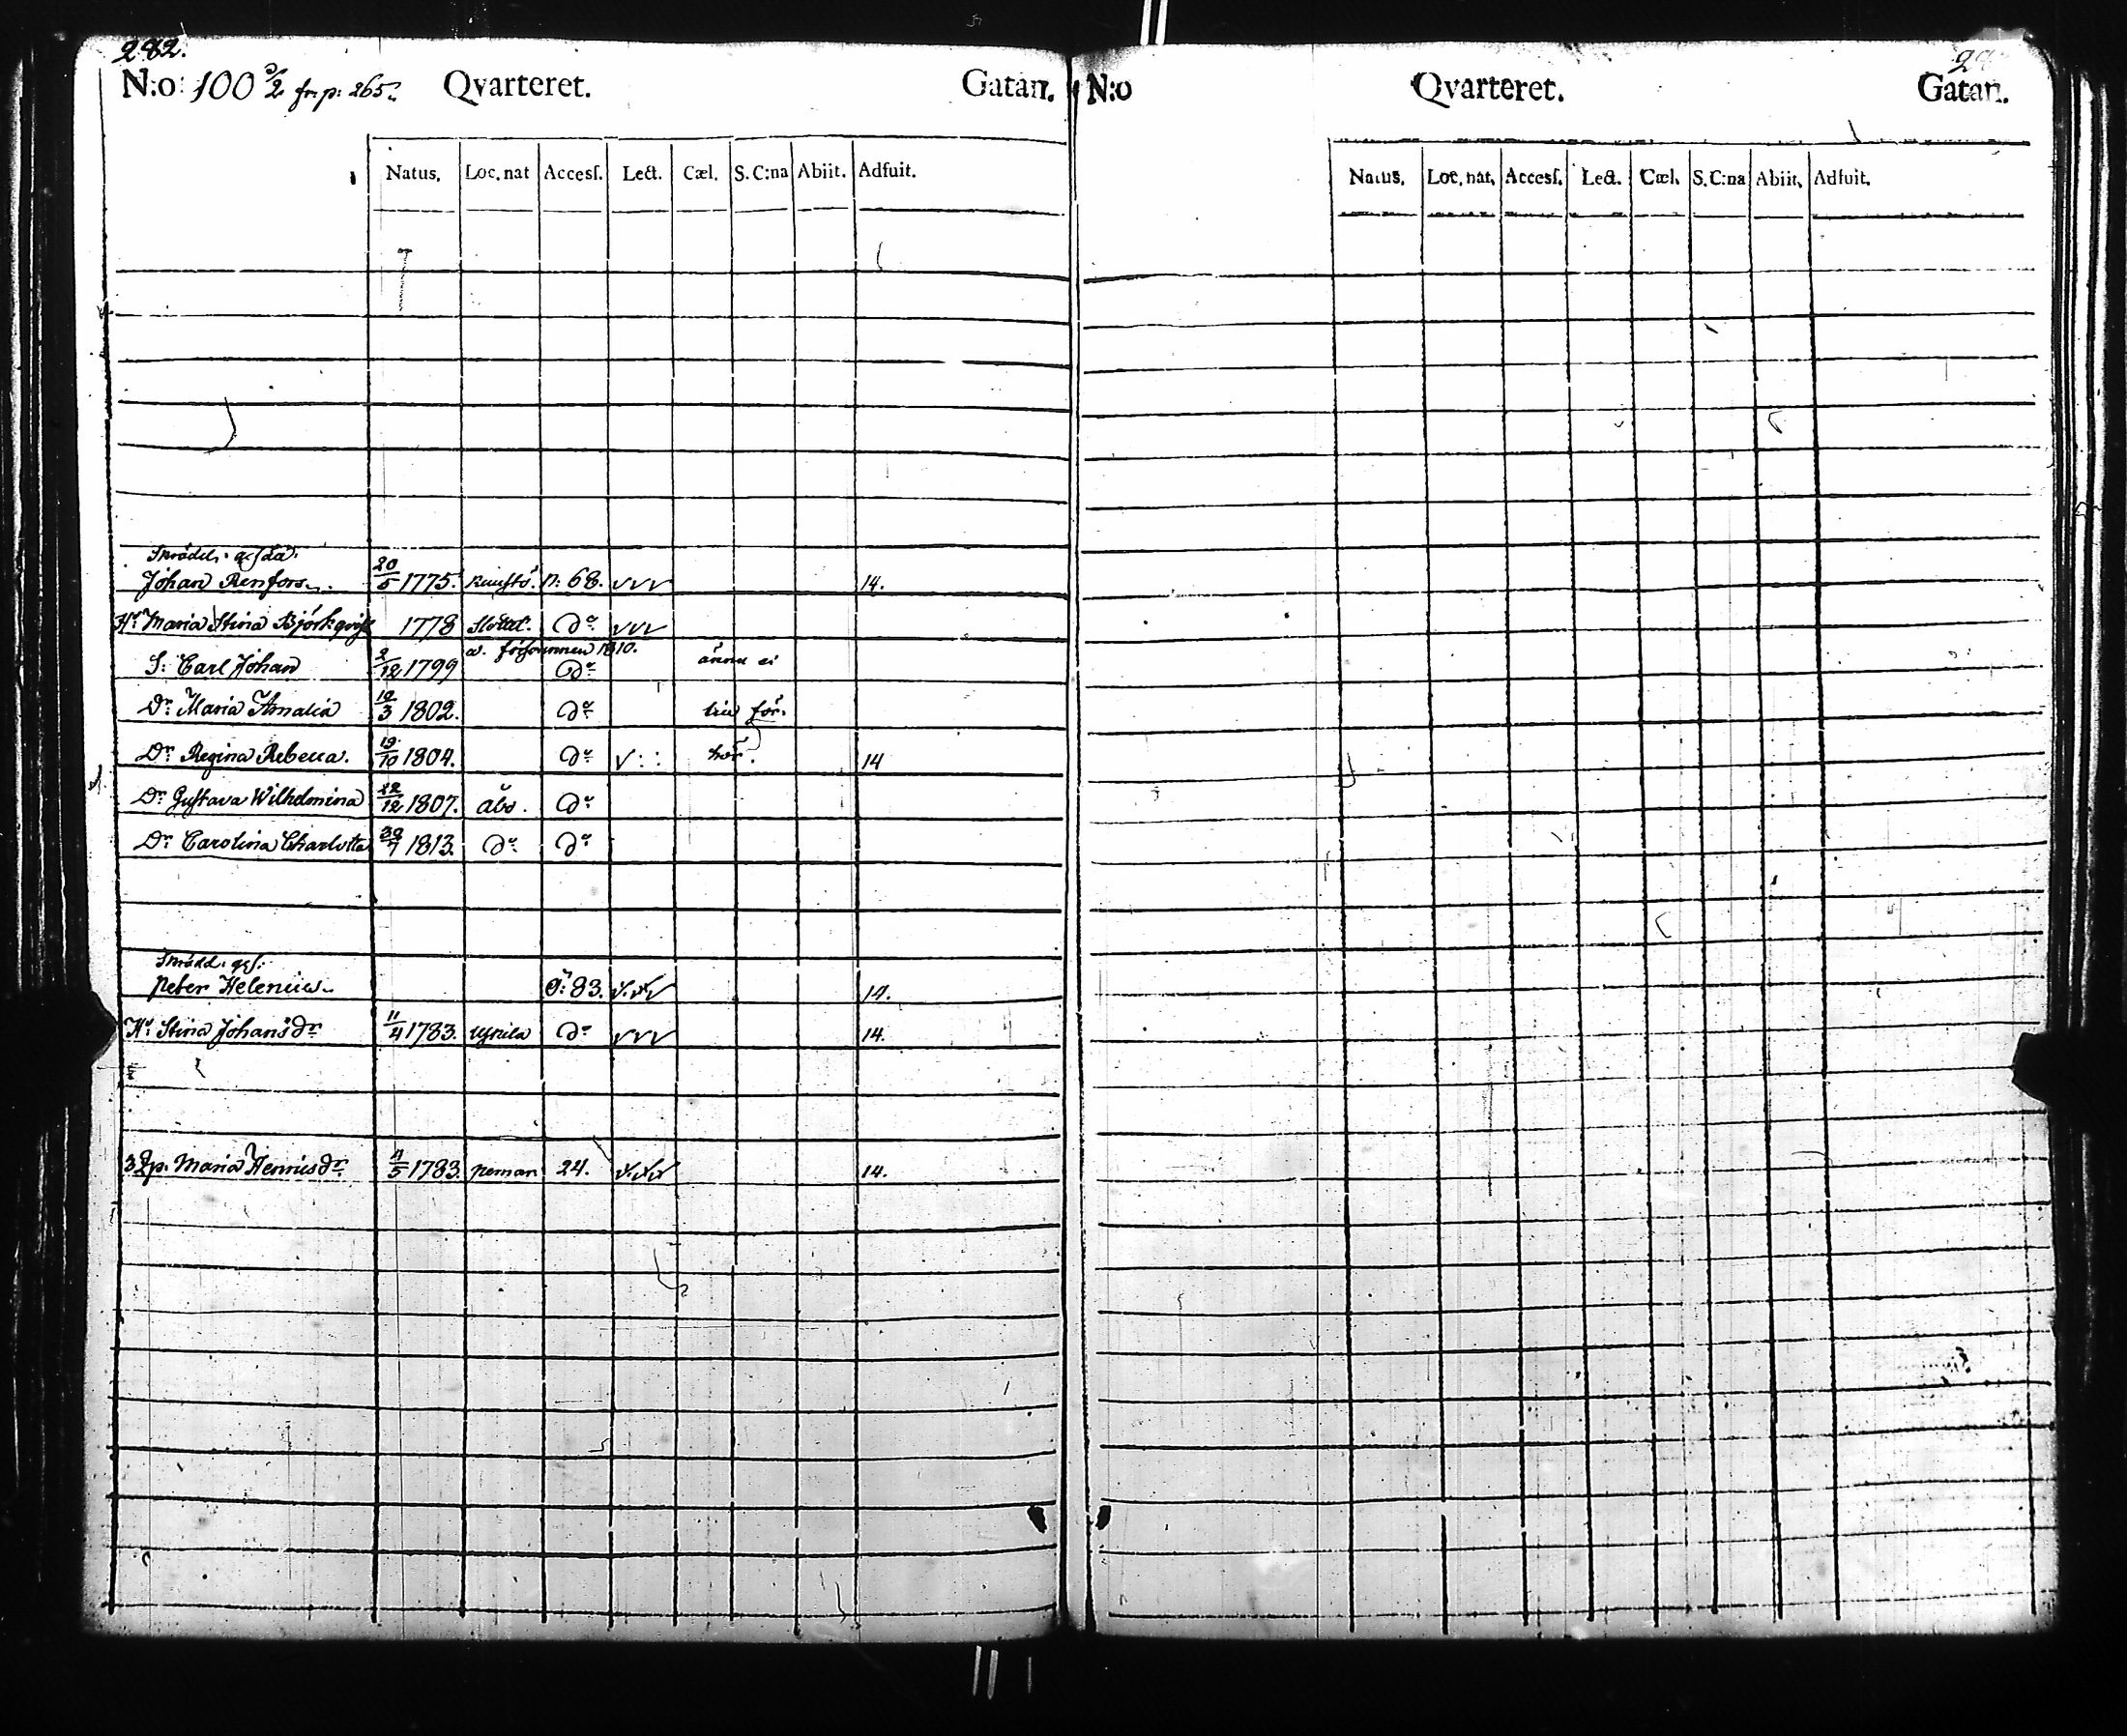 282.
N:o 100 3/2 fr. p: 265. Qvarteret. Gatan.
Natus. Loc. nat Accesſ. Lect. Cæl. S. C:na Abiit. Adfuit.
Skrädd. ges.
Johan Renfors 20/5 1775. n: 68. v v v 14.
H: Maria Stina Björkqvist 1778 Slottet. Do v v v
1810.
S: Carl Johan 2/12 1799 Do ännu ei
Dr Maria Amalia 10/3 1802. Do för.
Dr Regina Rebecca. 19/10 1804. Do v : : hör. 14
Dr Gustava Wilhelmina 22/12 1807. Åbo. Do
Dr Carolina Charlotta 30/7 1813. Do Do
Skrädd: ges:
Peter Helenius O: 83. v v v 14.
H: Stina Johansdr 11/4 1783. Do v v v 14.
Maria Henricsdr 4/5 1783. pemar 24. v v v 14.
N:o Qvarteret. Gatan.
Natus. Loc. nat. Accesſ. Lect. Cæl. S. C:na Abiit. Adfuit.